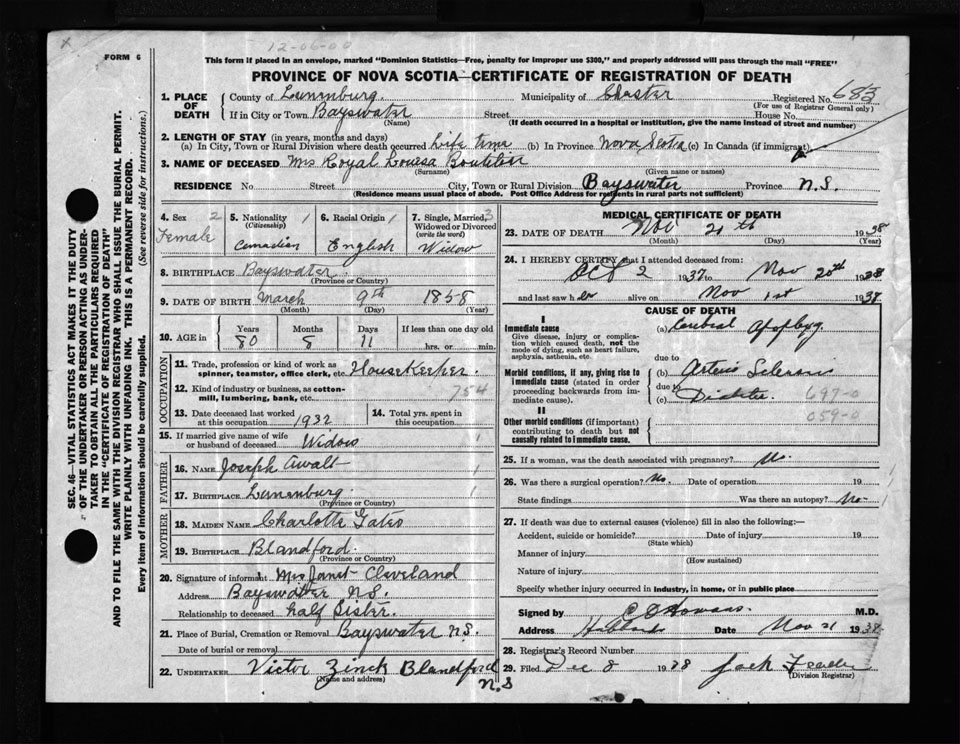 12-06-00
FORM 6
This form if placed in an envelope, marked "Dominion Statistics—Free, penalty for improper use $300," and properly addressed will pass through the mail "FREE"
PROVINCE OF NOVA SCOTIA—CERTIFICATE OF REGISTRATION OF DEATH
SEC. 46—VITAL STATISTICS ACT MAKES IT THE DUTY
OF THE UNDERTAKER OR PERSON ACTING AS UNDER-
TAKER TO OBTAIN ALL THE PARTICULARS REQUIRED
IN THE "CERTIFICATE OF REGISTRATION OF DEATH"
AND TO FILE THE SAME WITH THE DIVISION REGISTRAR WHO SHALL ISSUE THE BURIAL PERMIT.
WRITE PLAINLY WITH UNFADING INK. THIS IS A PERMANENT RECORD.
Every item of information should be carefully supplied. (See reverse side for instructions.)
1. PLACE OF DEATH County of Lunenburg. Municipality of Chester Registered No. 683
(For use of Registrar General only)
If in City or Town Bayswater Street House No.
(Name) (If death occurred in a hospital or institution, give the name instead of street and number)
2. LENGTH OF STAY (in years, months and days)
(a) In City, Town or Rural Division where death occurred Life time (b) In Province Nova Scotia (c) In Canada (if immigrant)
3. NAME OF DECEASED Mrs Royal Louisa Boutilier
(Surname) (Given name or names)
RESIDENCE No. Street City, Town or Rural Division Bayswater Province N.S.
(Residence means usual place of abode. Post Office Address for residents in rural parts not sufficient)
4. Sex 2 Female
5. Nationality (Citizenship) 1 Canadian
6. Racial Origin 1 English
7. Single, Married, Widowed or Divorced (write the word) 3 Widow
8. BIRTHPLACE Bayswater.
(Province or Country)
9. DATE OF BIRTH March 9th 1858
(Month) (Day) (Year)
10. AGE in Years 80 Months 8 Days 11 If less than one day old hrs. or min.
OCCUPATION
11. Trade, profession or kind of work as spinner, teamster, office clerk, etc. Housekeeper.
12. Kind of industry or business, as cotton-mill, lumbering, bank, etc. 754
13. Date deceased last worked at this occupation. 1932 14. Total yrs. spent in this occupation.
15. If married give name of wife or husband of deceased Widow 1
FATHER
16. NAME Joseph Awalt 1
17. BIRTHPLACE Lunenburg. 1
(Province or Country)
MOTHER
18. MAIDEN NAME Charlotte Gates
19. BIRTHPLACE Blandford.
(Province or Country)
20. Signature of informant Mrs Janet Cleveland
Address Bayswater N.S.
Relationship to deceased half Sister.
21. Place of Burial, Cremation or Removal Bayswater N.S.
Date of burial or removal
22. UNDERTAKER Victor Zinck Blandford
(Name and address) N.S
MEDICAL CERTIFICATE OF DEATH
23. DATE OF DEATH Nov 20th 1938
(Month) (Day) (Year)
24. I HEREBY CERTIFY that I attended deceased from:
Oct 2 1937 to Nov 20th 1938
and last saw her alive on Nov 1st 1938
CAUSE OF DEATH
I
Immediate cause
Give disease, injury or complication which caused death, not the mode of dying, such as heart failure, asphyxia, asthenia, etc.
(a) Cerebral Apoplexy
due to
Morbid conditions, if any, giving rise to immediate cause (stated in order proceeding backwards from immediate cause).
(b) Arterio Sclerosis
due to
(c) Diabetes 697-0
059-0
II
Other morbid conditions (if important) contributing to death but not causally related to immediate cause.
25. If a woman, was the death associated with pregnancy? No.
26. Was there a surgical operation? No. Date of operation 19
State findings Was there an autopsy? No
27. If death was due to external causes (violence) fill in also the following:—
Accident, suicide or homicide? Date of injury 19
(State which)
Manner of injury
(How sustained)
Nature of injury
Specify whether injury occurred in Industry, in home, or in public place
Signed by M.D.
Address Hubbards Date Nov 21 1938
28. Registrar's Record Number
29. Filed Dec 8 1938 Jack
(Division Registrar)